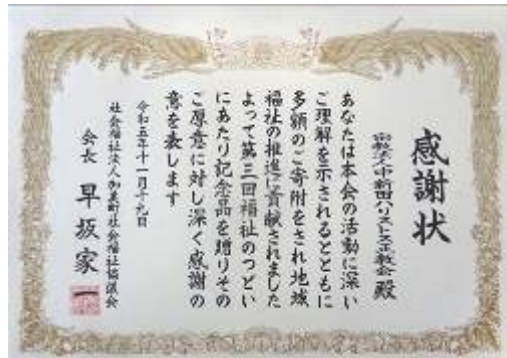 感謝状
宗教法人中新田ハリストス正教会 殿
あなたは本会の活動に深い
ご理解を示されるとともに
多額のご寄附をされ地域
福祉の推進に貢献されました
よって第三回福祉のつどい
にあたり記念品を贈りその
ご厚意に対し深く感謝の
意を表します
令和五年十一月十九日
社会福祉法人加美町社会福祉協議会
会長 早坂家一